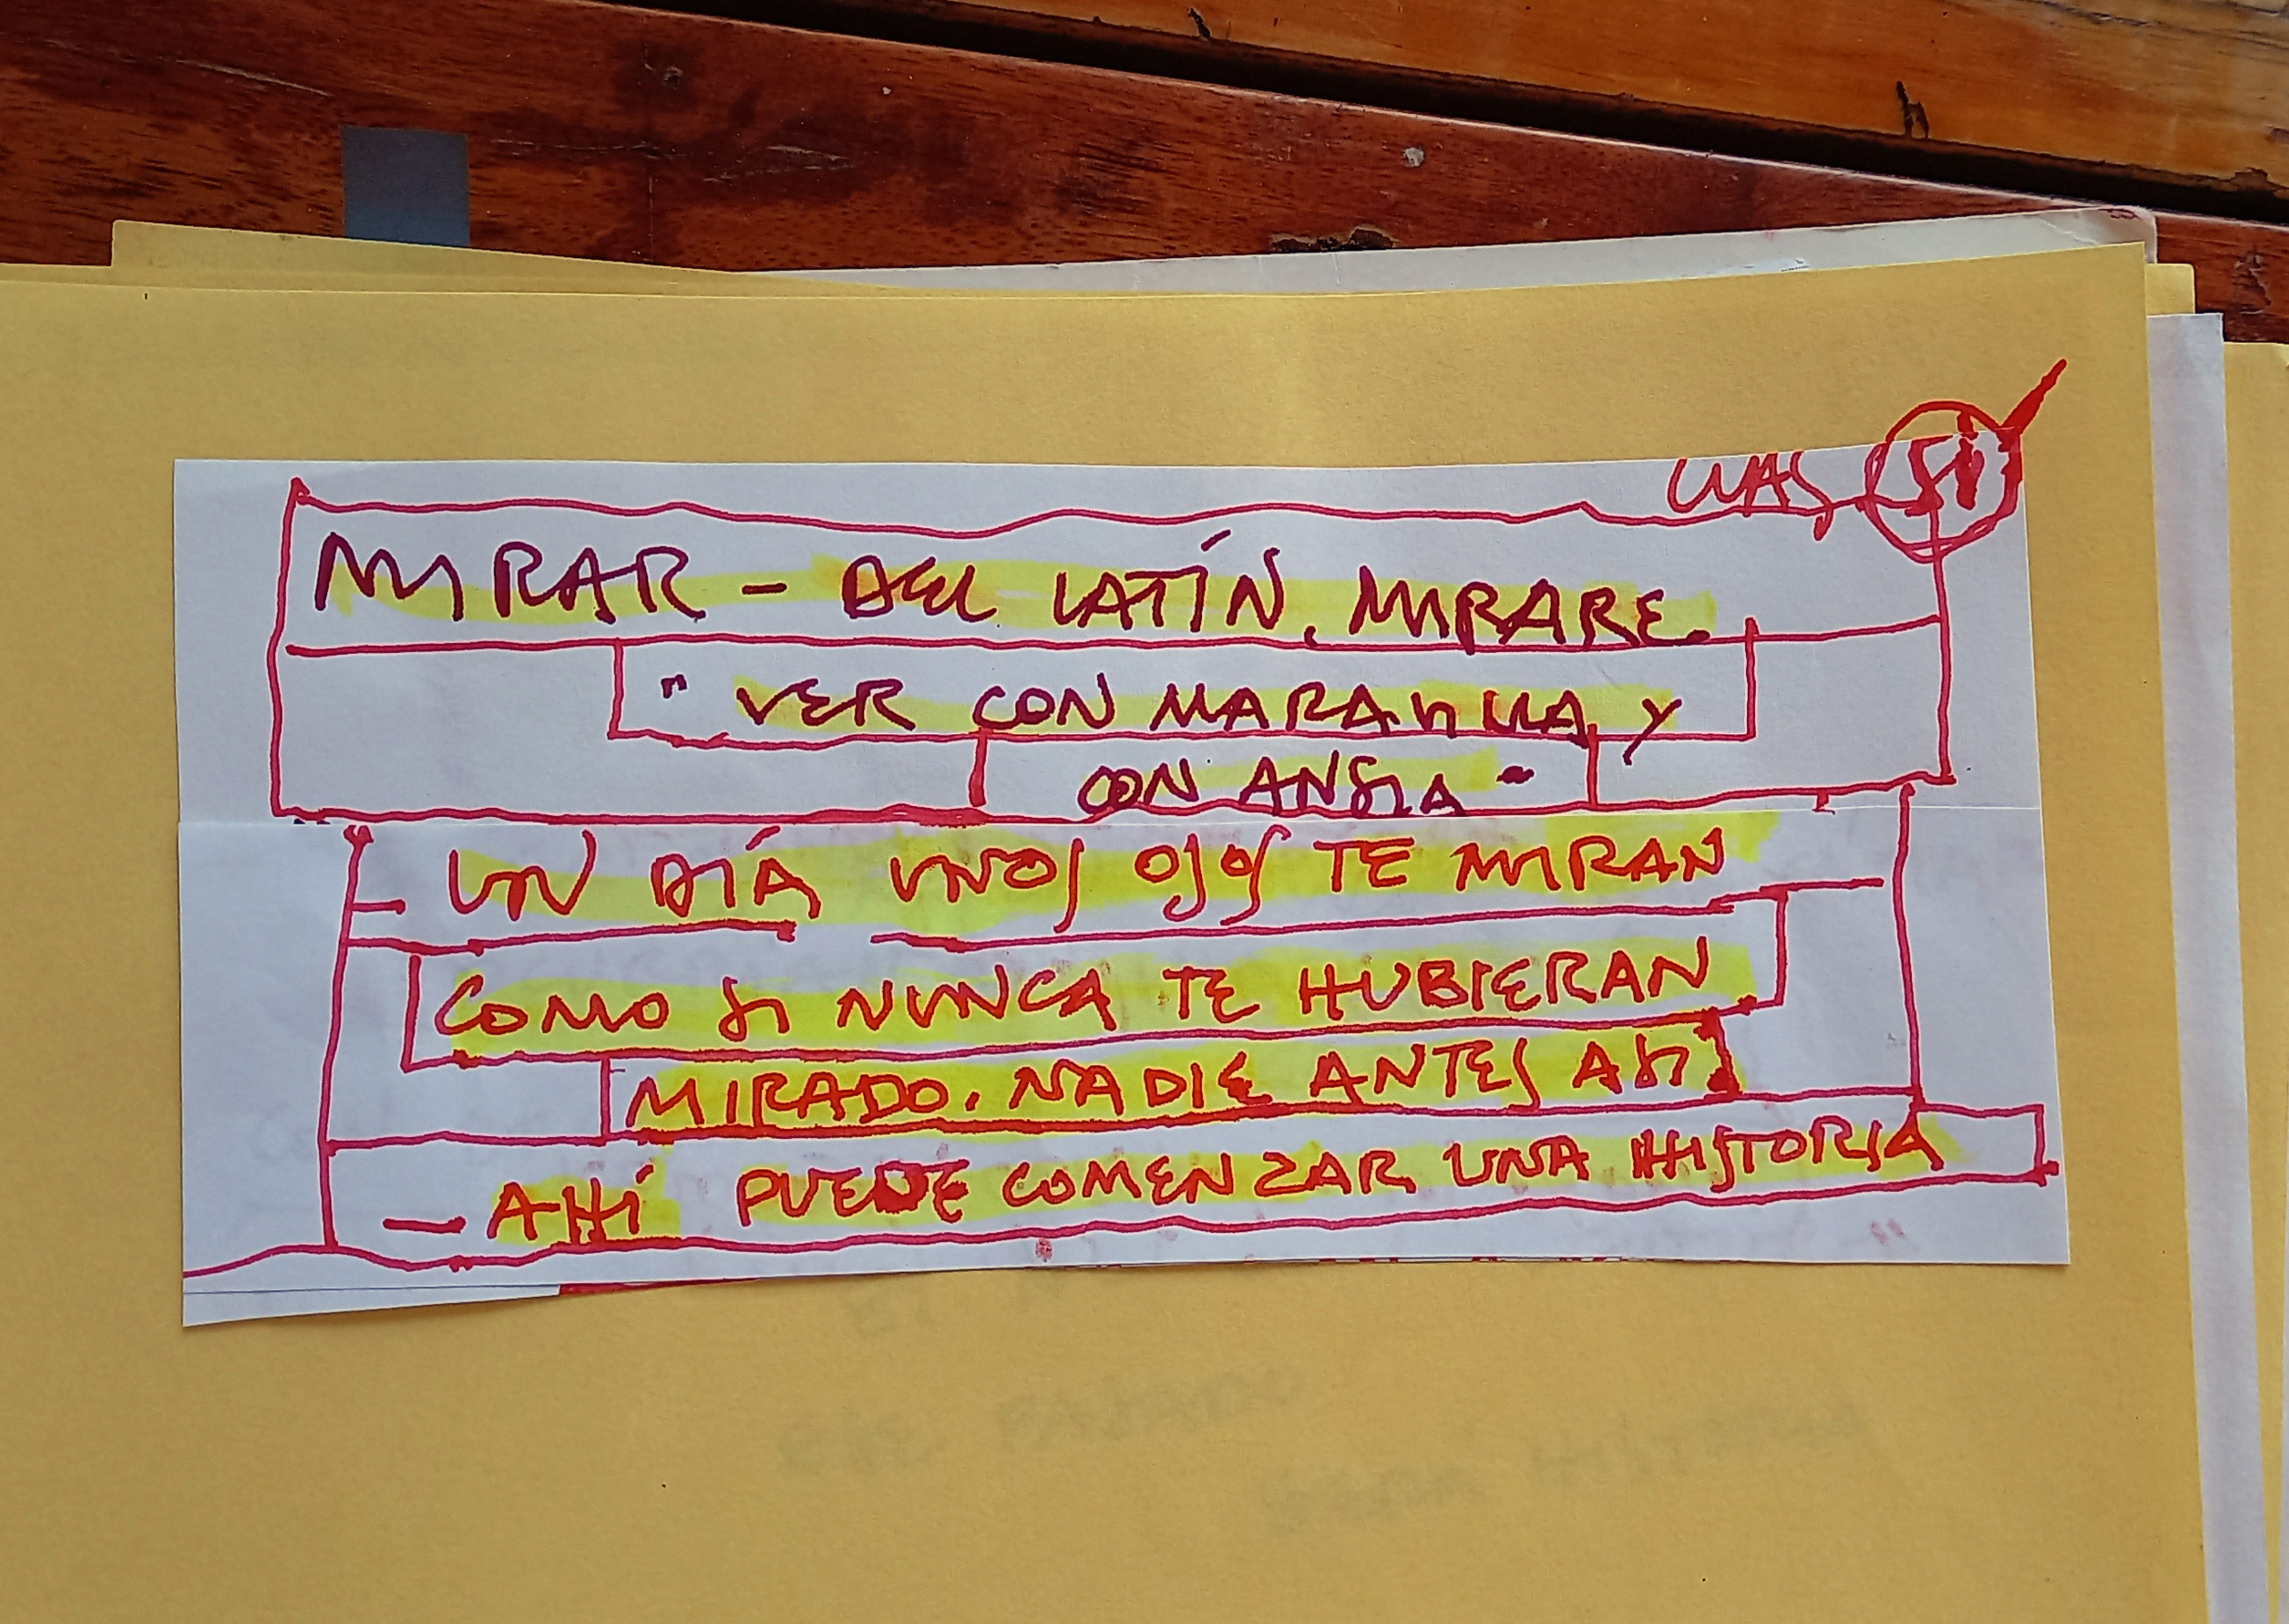 SÍ
MIRAR - DEL LATÍN, MIRARE
" VER CON MARAVILLA Y
CON ANSIA "
UN DÍA UNOS OJOS TE MIRAN
COMO SI NUNCA TE HUBIERAN
MIRADO. NADIE ANTES ASÍ
— AHÍ PUEDE COMENZAR UNA HISTORIA